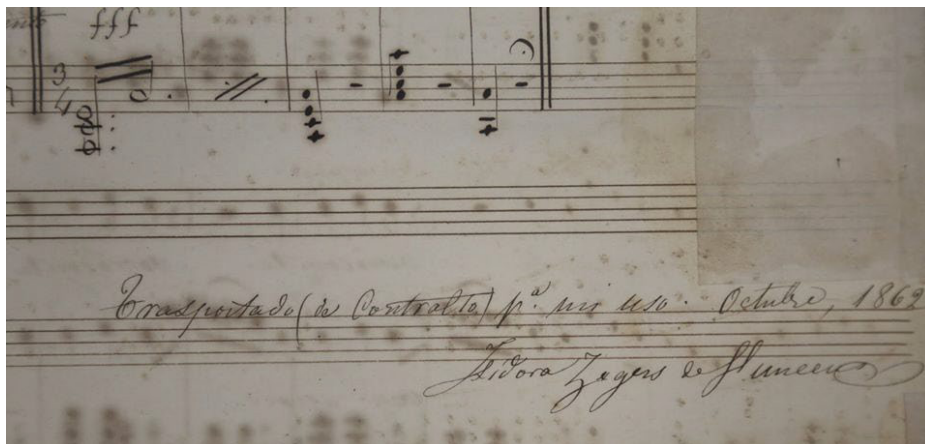 fff
3
4
Trasportado (de Contralto) p.ª mi uso. Octubre, 1862
Isidora Zegers de Huneeus